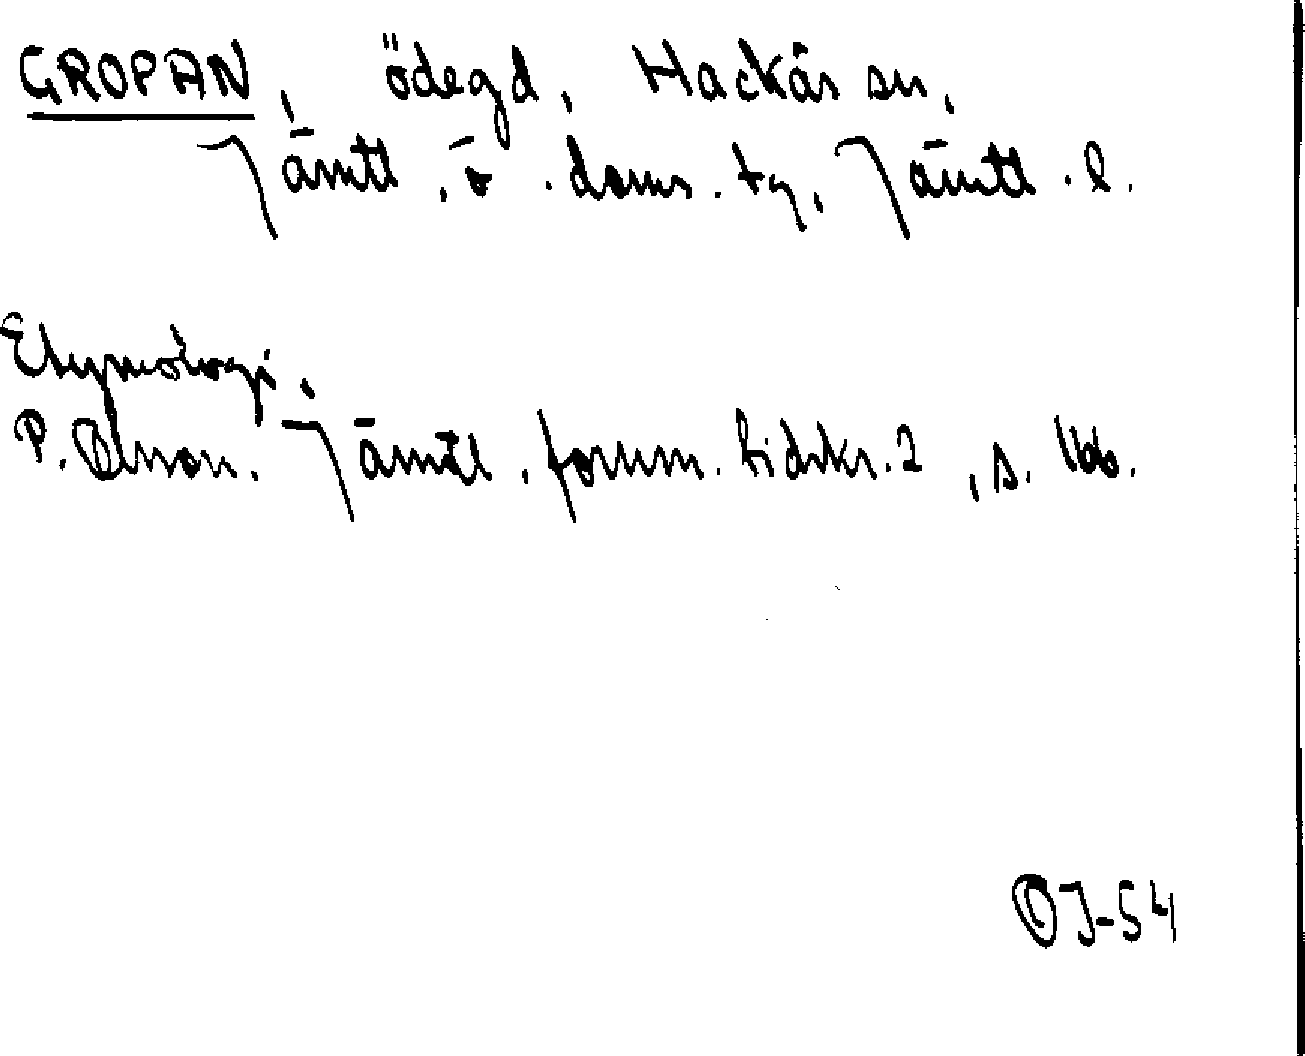 GROPAN, ödegd, Hackås sn,
Jämtl. ö. doms. tg, Jämtl. l.
Etymologi.
P. Olsson. Jämtl. fornm. tidskr. 2, s. 166.
OJ-54